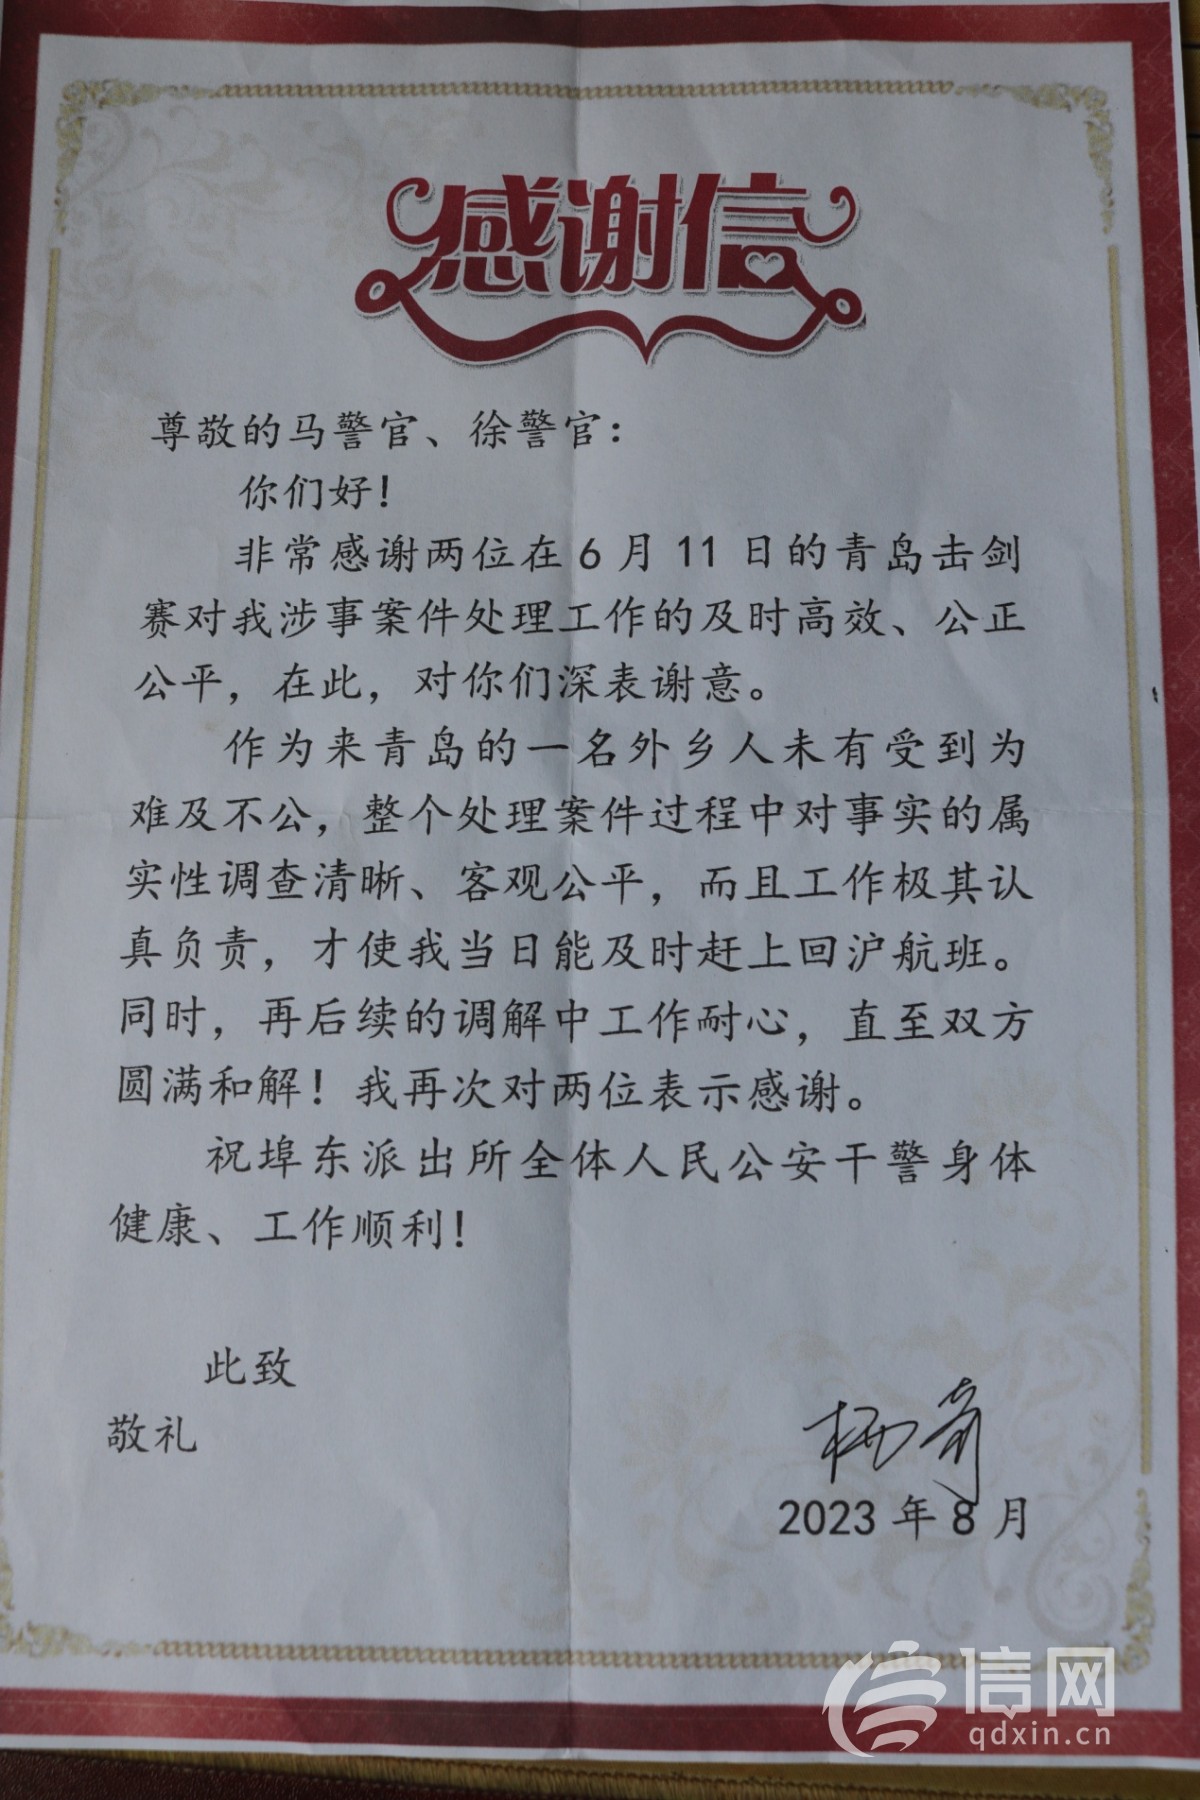 感谢信
尊敬的马警官、徐警官：
你们好！
非常感谢两位在6月11日的青岛击剑
赛对我涉事案件处理工作的及时高效、公正
公平，在此，对你们深表谢意。
作为来青岛的一名外乡人未有受到为
难及不公，整个处理案件过程中对事实的属
实性调查清晰、客观公平，而且工作极其认
真负责，才使我当日能及时赶上回沪航班。
同时，再后续的调解中工作耐心，直至双方
圆满和解！我再次对两位表示感谢。
祝埠东派出所全体人民公安干警身体
健康、工作顺利！
此致
敬礼
2023年8月
信网
qdxin.cn